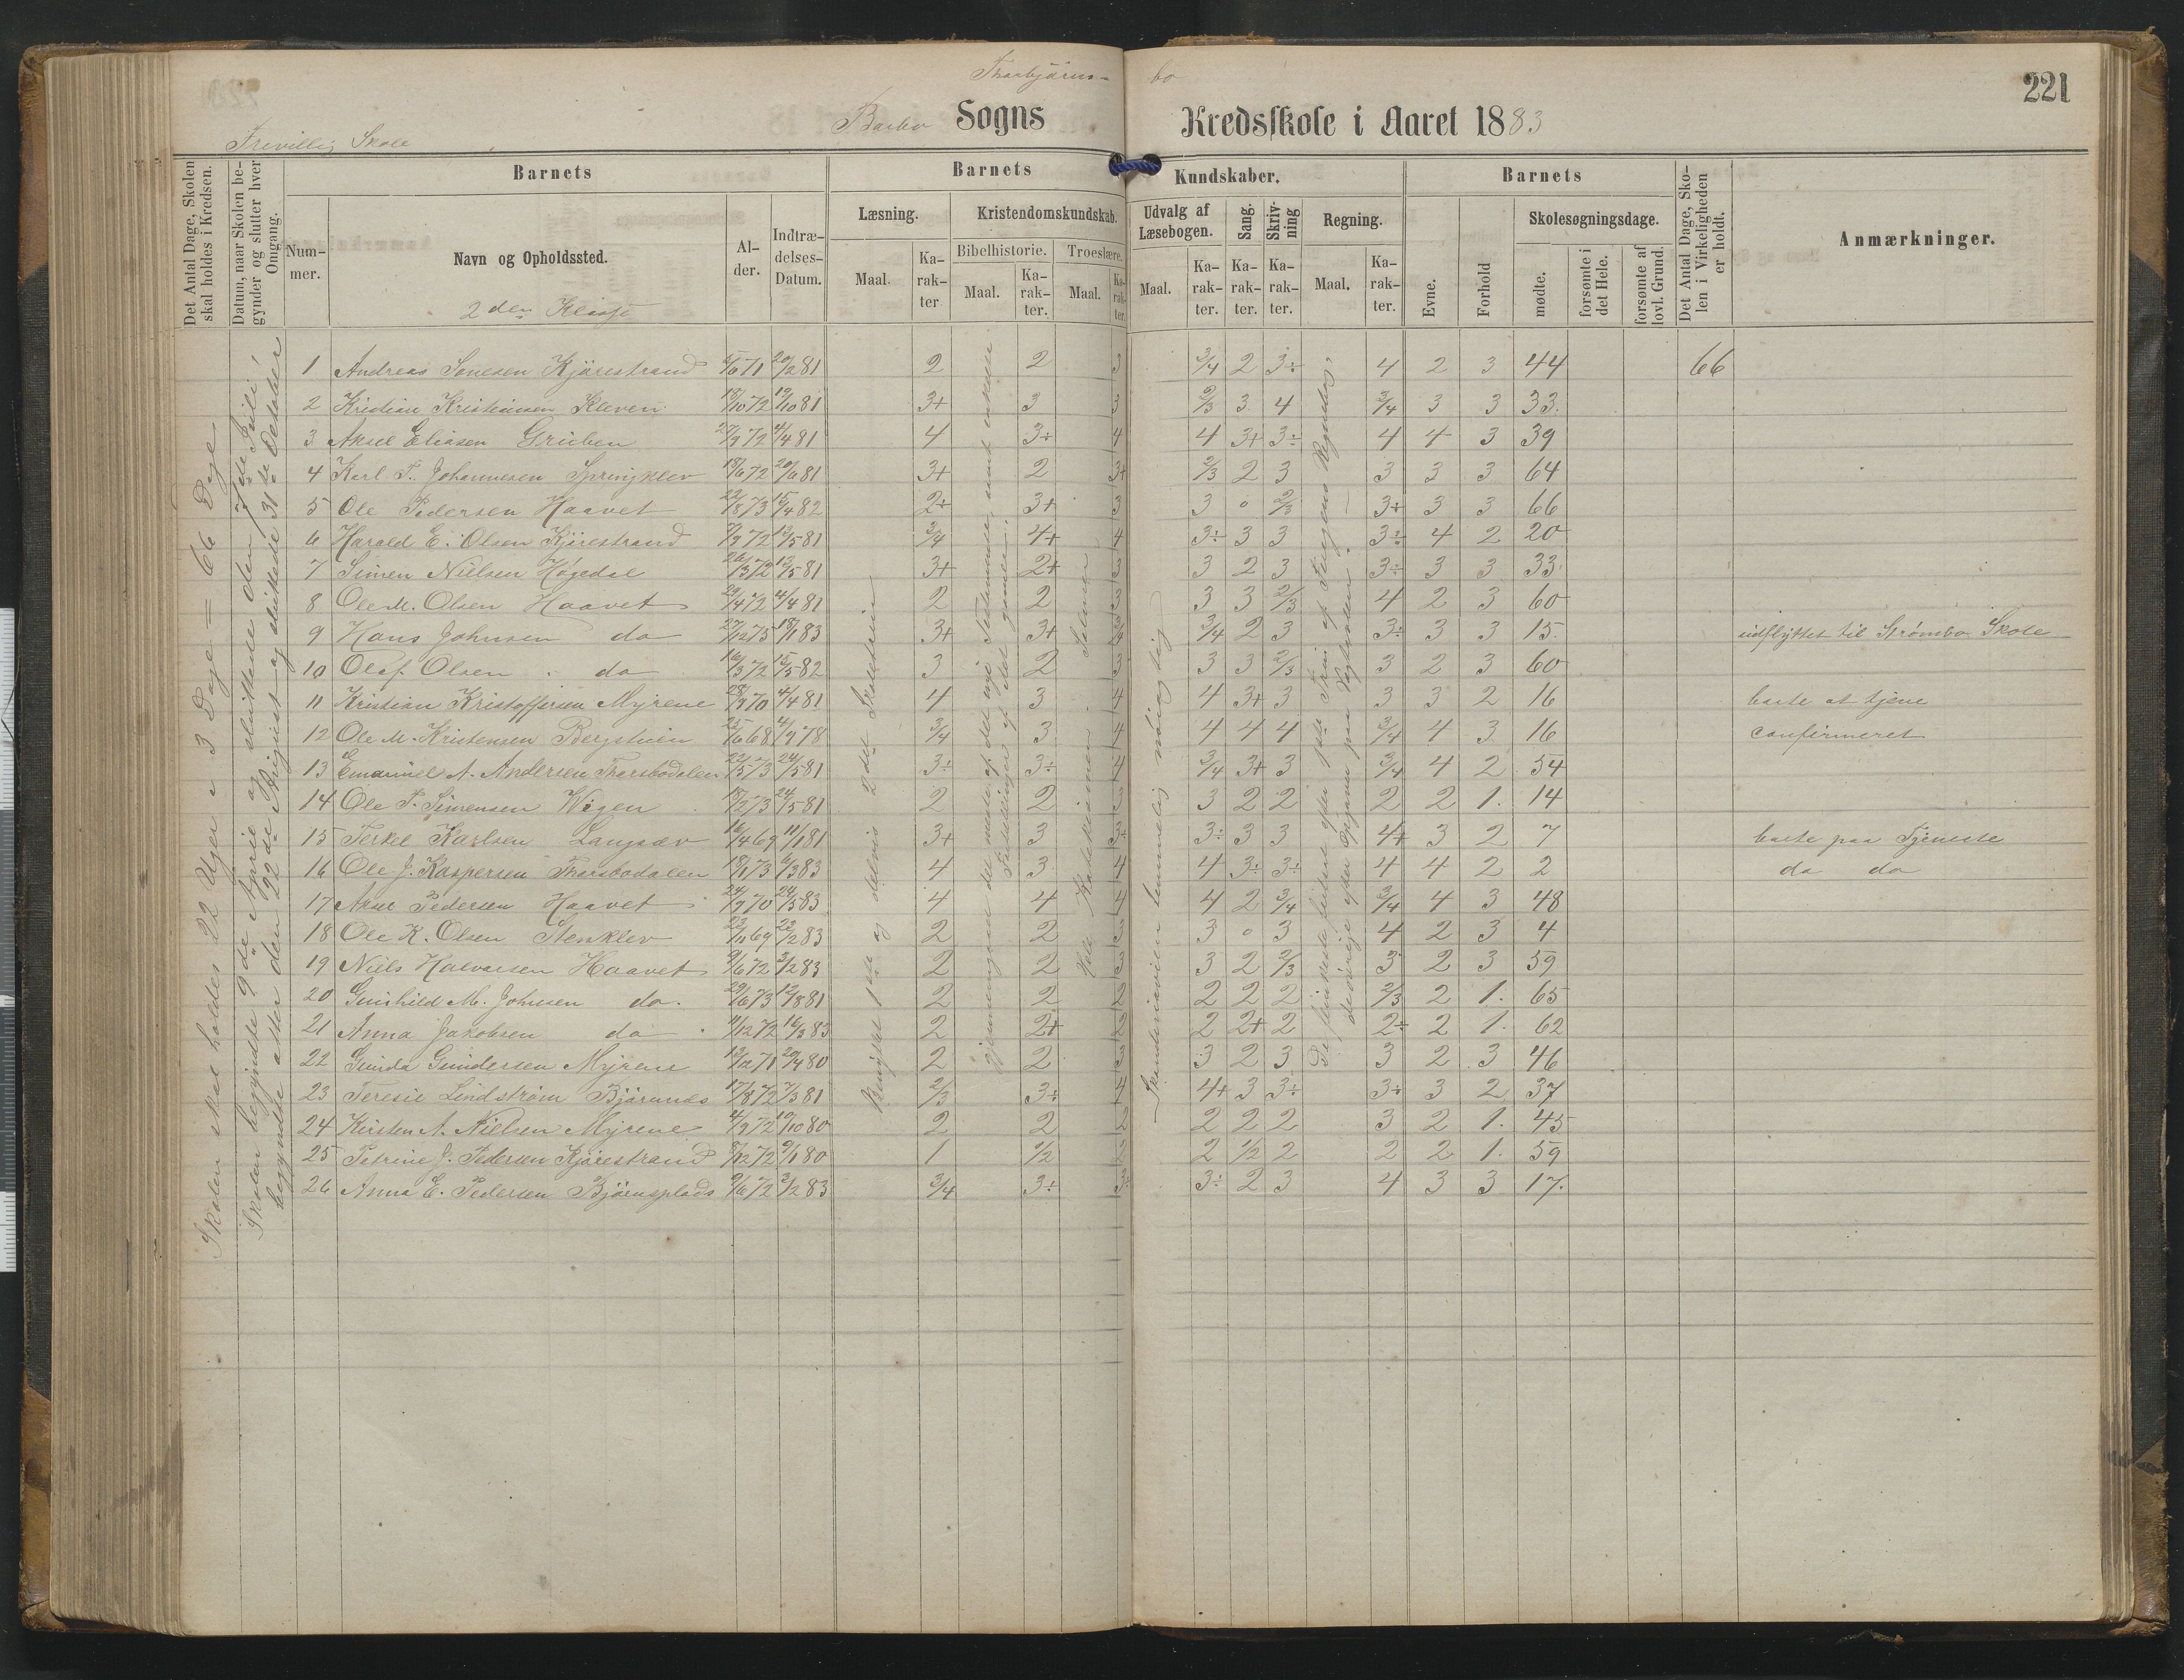 221
Thorbjörns- bo
Barbo Sogns Kredsskole i Aaret 1883
Frivillig Skole
Det Antal Dage, Skolen skal holdes i Kredsen.
Datum, naar Skolen begynder og slutter hver Omgang.
Barnets
Barnets Kundskaber.
Barnets
Det Antal Dage, Skolen i Virkeligheden er holdt.
Anmærkninger.
Nummer.
Navn og Opholdssted.
Alder.
Indtrædelses-Datum.
Læsning.
Kristendomskundskab.
Udvalg af Læsebogen.
Sang.
Skrivning
Regning.
Evne.
Forhold
Skolesøgningsdage.
Bibelhistorie.
Troeslære.
Maal.
Karakter
Maal.
Karakter.
Maal.
Karakter.
Maal.
Karakter.
Karakter.
Karakter.
Maal.
Karakter.
mødte.
forsømte i det Hele.
forsømte af lovl. Grund.
2den Klasse
Skolen skal holdes 22 Uger a 3 Dage = 66 Dage
Skolen begyndte 9de April og sluttede den 7de Juli,
begyndte atter den 22de August og sluttede 31te Oktober
Benyttet 1ste og delvis 2det Skoletrin
Gjennemgaaet det meste af det nye Testamente, samt enkelte
Fortællinger af det gamle.
Hele Katekismen. Salmer
Skandinavien temmelig nøiagtig
De flinkeste fulgte efter 1ste Trin af Fuagens Regnebog,
de øvrige efter Opgaver paa Vægtavlen.
1 Andreas Tonesen Kjörestrand 5/6 71 20/2 81 2 2 3 3/4 2 3÷ 4 2 3 44 66
2 Kristian Kristiansen Kleven 18/10 72 19/10 81 3+ 3 3 2/3 3 4 3/4 3 3 33.
3 Aksel Eliasen Grieben 27/9 72 4/4 81 4 3÷ 4 4 3+ 3÷ 4 4 3 39
4 Karl T. Johannesen Springklev 18/6 72 20/6 81 3+ 2 3+ 2/3 2 3 3 3 3 64
5 Ole Pedersen Haavet 22/8 73 15/4 82 2÷ 3+ 3 3 0 2/3 3+ 3 3 66
6 Harald E. Olsen Kjörestrand 2/9 72 12/5 81 3/4 4+ 4 3÷ 3 3 3÷ 4 2 20
7 Simen Nielsen Högedal 26/3 72 12/5 81 3+ 2+ 3 3 2 3 3÷ 3 3 33
8 Ole M. Olsen Haavet 29/4 72 4/4 81 2 2 3 3 3 2/3 4 2 3 60
9 Hans Johnsen do 27/12 75 18/1 83 3+ 3+ 3/4 2 3 3÷ 3 3 15. udflyttet til Strømbo Skole
10 Olaf Olsen do 16/3 72 15/5 82 3 2 3 3 3 2/3 3 2 3 60
11 Kristian Kristoffersen Myrene 28/9 70 4/4 81 4 3 4 4 3+ 3 3 3 2 16 borte at tjene
12 Ole M. Kristensen Bergstuen 25/6 68 4/9 78 3/4 3 4 4 4 4 3/4 4 3 16 confirmeret
13 Emanuel A. Andersen Thorsbodalen 22/5 73 24/5 81 3÷ 3÷ 4 3/4 3+ 3 3/4 4 2 54
14 Ole T. Simensen Wigen 18/2 73 24/5 81 2 2 3 3 2 2 2 2 1. 14
15 Terkel Karlsen Langsæv 16/4 69 11/1 81 3+ 3 3÷ 3÷ 3 3 4+ 3 2 7 borte paa Tjeneste
16 Ole J. Kaspersen Thorsbodalen 18/1 73 6/3 83 4 3 4 4 3÷ 3÷ 4 4 2 2 do do
17 Aksel Pedersen Haavet 24/9 70 24/5 83 4 4 4 4 2 3/4 3/4 4 3 48
18 Ole K. Olsen Stenklev 23/11 69 22/2 83 2 2 3 3 0 3 4 2 3 4
19 Niels Halvorsen Haavet 9/6 72 3/2 83 2 2 3 3 2 2/3 3 2 3 59
20 Gunhild M. Johnsen do. 29/6 73 12/8 81 2 2 2 2 2 2 2/3 2 1. 65
21 Anna Jakobsen do 11/12 72 16/3 83 2 2+ 2 2 2+ 2 2÷ 2 1. 62
22 Gunda Gundersen Myrene 12/12 71 20/4 80 2 2 3 3 2 3 3 2 3 46
23 Teresie Lindström Björnnes 17/8 72 7/3 81 2/3 3÷ 4 4+ 3 3÷ 3÷ 3 2 37
24 Kirsten A. Nielsen Myrene 4/9 72 19/10 80 2 2 2 2 2 2 3 2 1. 45
25 Petrine J. Pedersen Kjörestrand 8/12 72 9/1 80 1 1/2 2 2 1/2 2 2 2 1. 59
26 Anna E. Pedersen Björnsplads 9/6 72 3/2 83 3/4 3÷ 3÷ 3÷ 2 3 4 3 3 17.